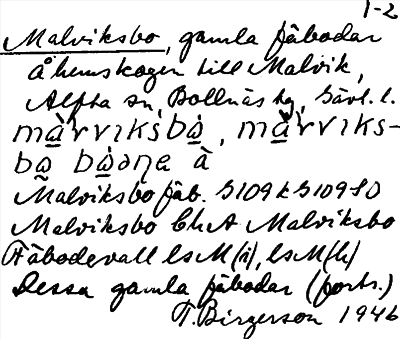 1-2
Malviksbo, gamla fäbodar
å hemskogen till Malvik,
Alfta sn, Bollnäs tg, Gävl. l.
màrvıksbo, màrvıks-
bo
à
Malviksbo fäb. G109k G109
Malviksbo ChA Malviksbo
Fäbodevall lsM(ä), lsM(h)
Dessa gamla fäbodar (forts.)
T. Birgerson 1946